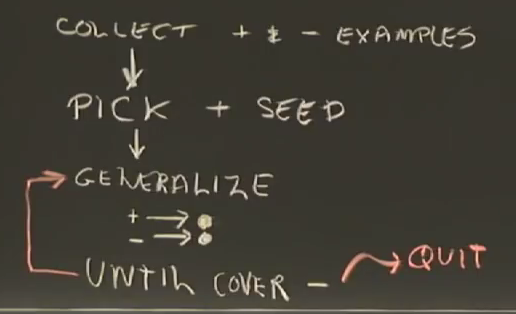 COLLECT + & - EXAMPLES
PICK + SEED
GENERALIZE
+ →
- →
UNTIL COVER - → QUIT